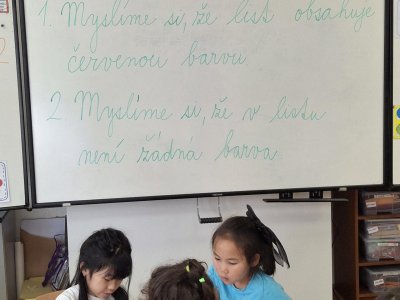 1. Myslíme si, že list obsahuje
červenou barvu
2. Myslíme si, že v listu
není žádná barva